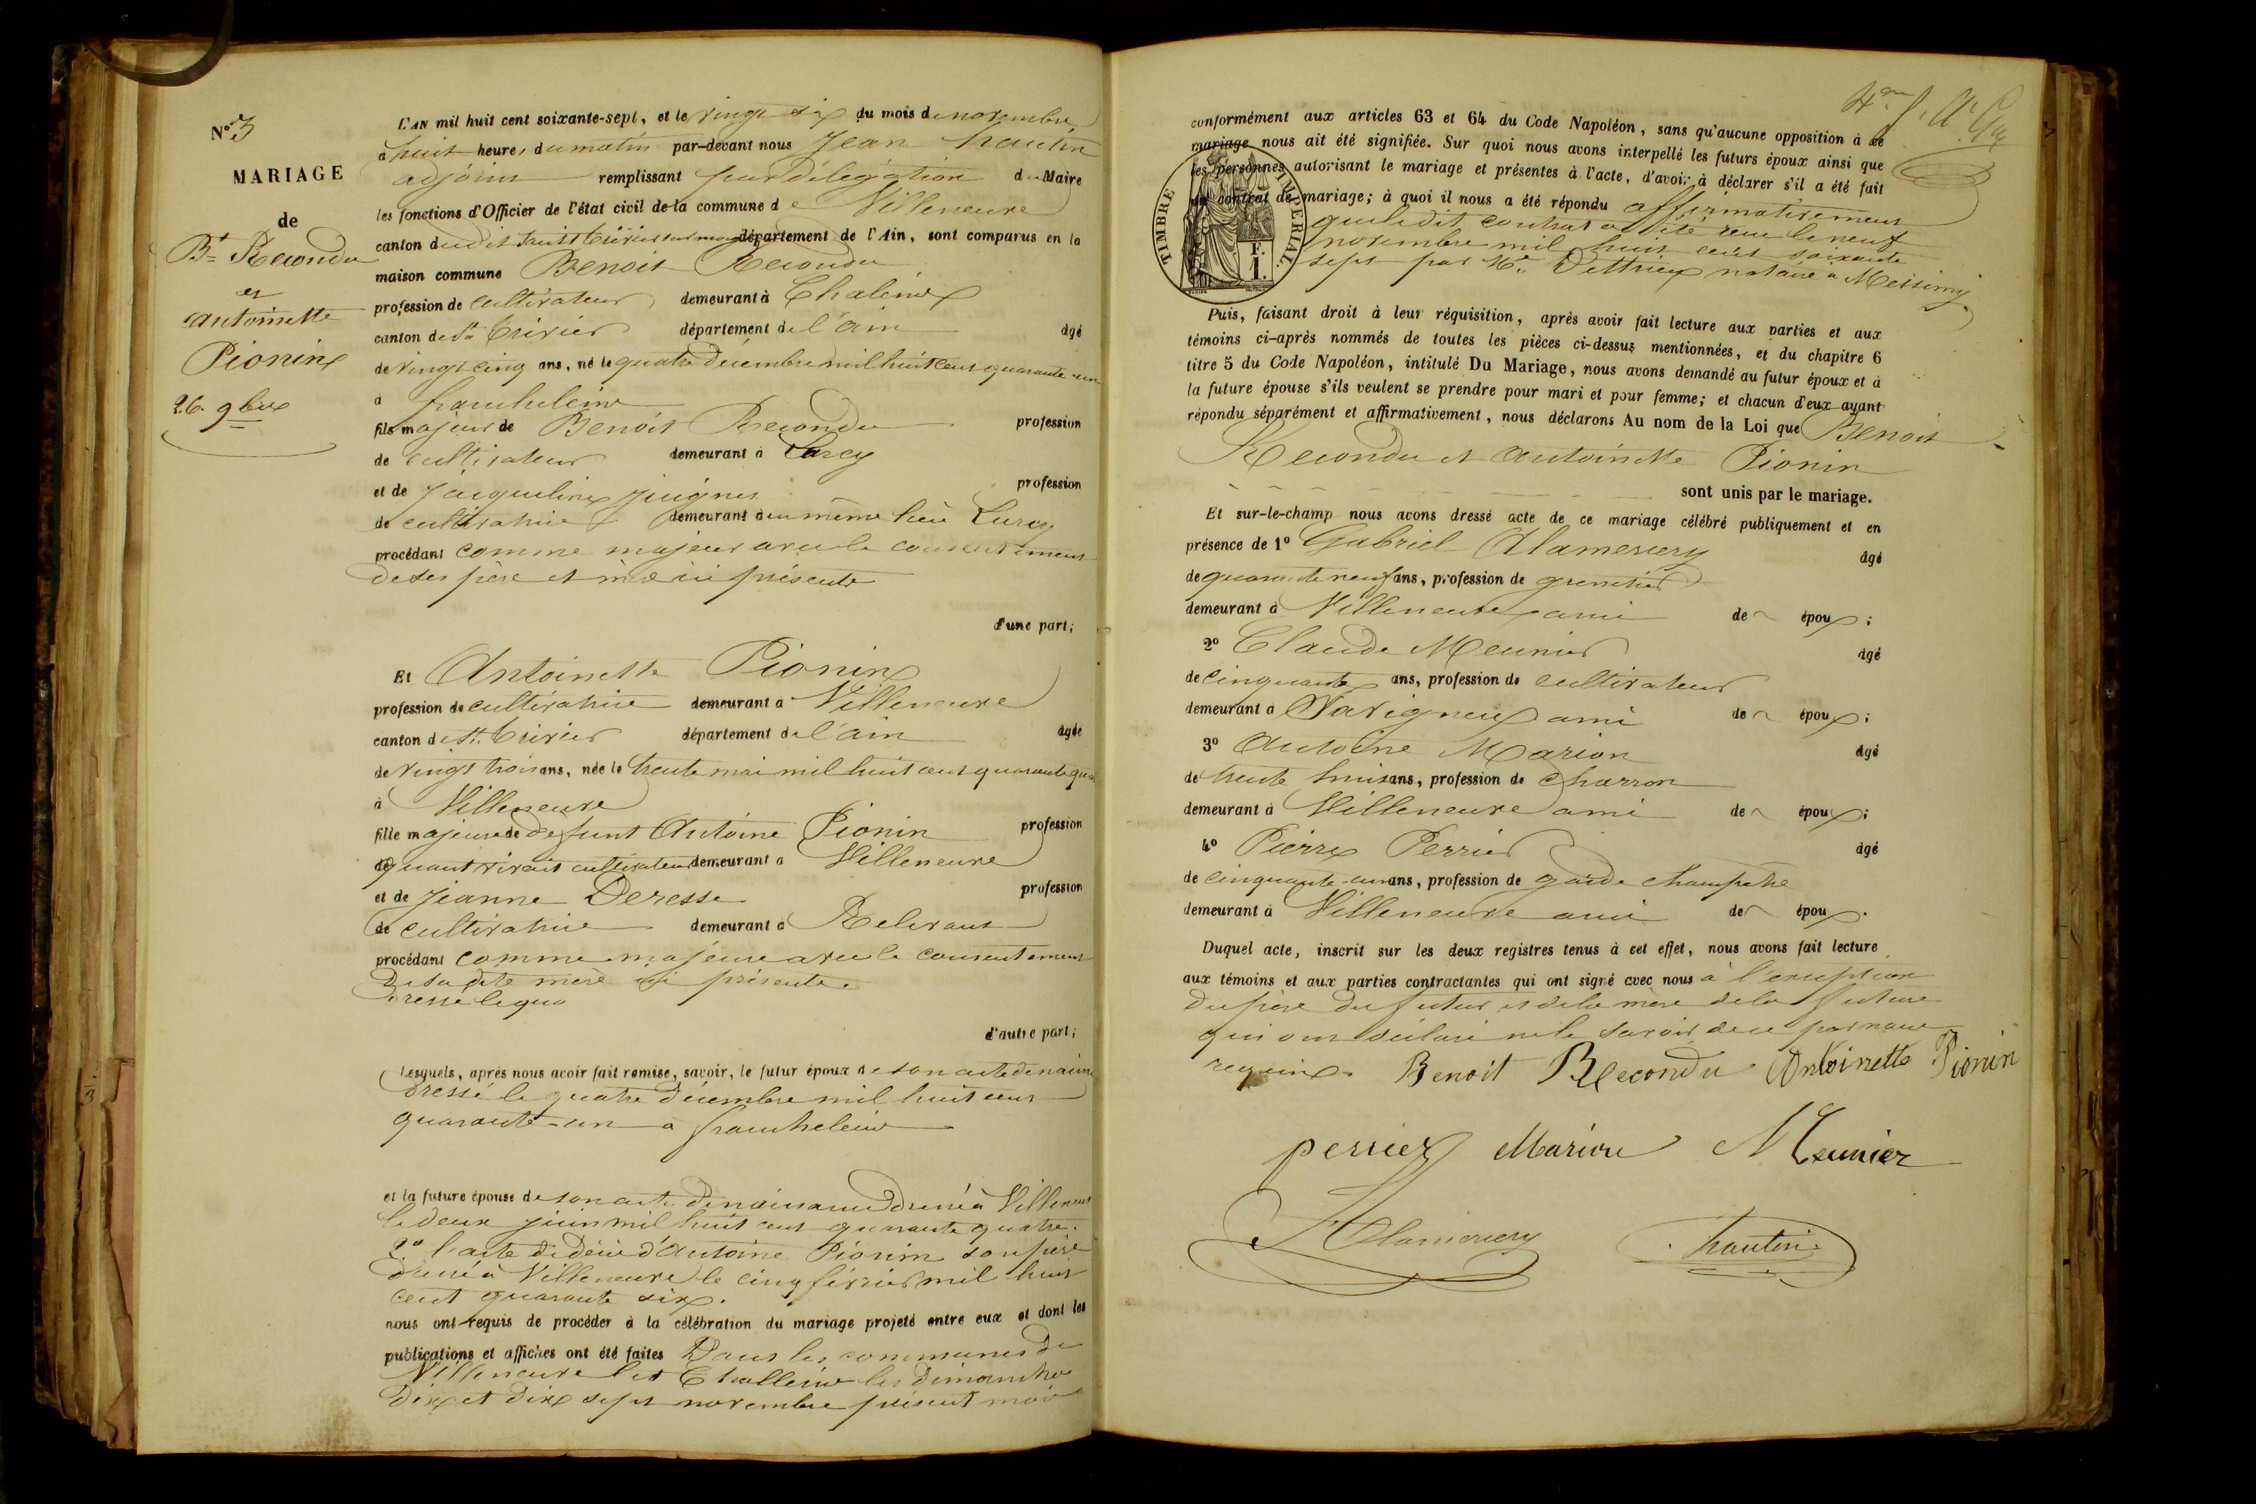 N° 3
MARIAGE
de
Bt Recondu
et
Antoinette
Pionin
26. 9bre
L'AN mil huit cent soixante-sept, et le vingt six du mois de novembre
à huit heures du matin par-devant nous Jean hautin
adjoint remplissant par délégation du Maire
les fonctions d'Officier de l'état civil de la commune de Villeneuve
canton dudit saint trivier sur département de l'Ain, sont comparus en la
maison commune Benoit Recondu
profession de cultivateur demeurant à Chaleins
canton de St trivier département de l'ain âgé
de vingt cinq ans, né le quatre décembre mil huit cent quarante un
à francheleins
fils majeur de Benoit Recondu profession
de cultivateur demeurant à Lurcy
et de Jacqueline profession
de cultivatrice demeurant au même lieu Lurcy
procédant comme majeur avec le consentement
de ses père et mère ici présente
d'une part;
Et Antoinette Pionin
profession de cultivatrice demeurant à Villeneuve
canton de St. trivier département de l'ain âgée
de vingt trois ans, née le trente mai mil huit cent quarante
à Villeneuve
fille majeure de defunt Antoine Pionin profession
de quant vivait cultivateur demeurant à Villeneuve
et de Jeanne Deresse profession
de cultivatrice demeurant à Relevant
procédant comme majeure avec le consentement
de sa dite mère ici présente.
dressé le qua
d'autre part;
Lesquels, après nous avoir fait remise, savoir, le futur époux de son acte de
dressé le quatre décembre mil huit cent
quarante-un à francheleins
et la future épouse de son acte de naissance dressé à Villeneuve
le deux juin mil huit cent quarante quatre.
2° l'acte de décès d'Antoine Pionin son père
dressé à Villeneuve le cinq février mil huit
cent quarante six.
nous ont requis de procéder à la célébration du mariage projeté entre eux et dont les
publications et affiches ont été faites Dans les communes de
Villeneuve et Challeins les dimanche
dix et dix sept novembre présent mois
conformément aux articles 63 et 64 du Code Napoléon, sans qu'aucune opposition à ce
mariage nous ait été signifiée. Sur quoi nous avons interpellé les futurs époux ainsi que
les personnes autorisant le mariage et présentes à l'acte, d'avoir à déclarer s'il a été fait
un contrat de mariage; à quoi il nous a été répondu affirmativement
que le dit contrat a été reçu le neuf
novembre mil huit cent soixante
sept par Me notaire à Messimy
TIMBRE IMPERIAL
F.
1.
Puis, faisant droit à leur réquisition, après avoir fait lecture aux parties et aux
témoins ci-après nommés de toutes les pièces ci-dessus mentionnées, et du chapitre 6
titre 5 du Code Napoléon, intitulé Du Mariage, nous avons demandé au futur époux et à
la future épouse s'ils veulent se prendre pour mari et pour femme; et chacun d'eux ayant
répondu séparément et affirmativement, nous déclarons Au nom de la Loi que Benoit
Recondu et Antoinette Pionin
sont unis par le mariage.
Et sur-le-champ nous avons dressé acte de ce mariage célébré publiquement et en
présence de 1° Gabriel Alamercery âgé
de quarante neuf ans, profession de
demeurant à Villeneuve ami de époux;
2° Claude Meunier âgé
de cinquante ans, profession de cultivateur
demeurant à Savigneux ami de époux;
3° Antoine Marion âgé
de trente huit ans, profession de charron
demeurant à Villeneuve ami de époux;
4° Pierre Perrier âgé
de cinquante-un ans, profession de garde champetre
demeurant à Villeneuve ami de époux.
Duquel acte, inscrit sur les deux registres tenus à cet effet, nous avons fait lecture
aux témoins et aux parties contractantes qui ont signé avec nous à l'exception
du père du futur et de la mère de la future
qui ont déclaré ne le savoir de ce par nous
requis. Benoit Recondu Antoinette Pionin
perrier Marion Meunier
Alamercery hautin